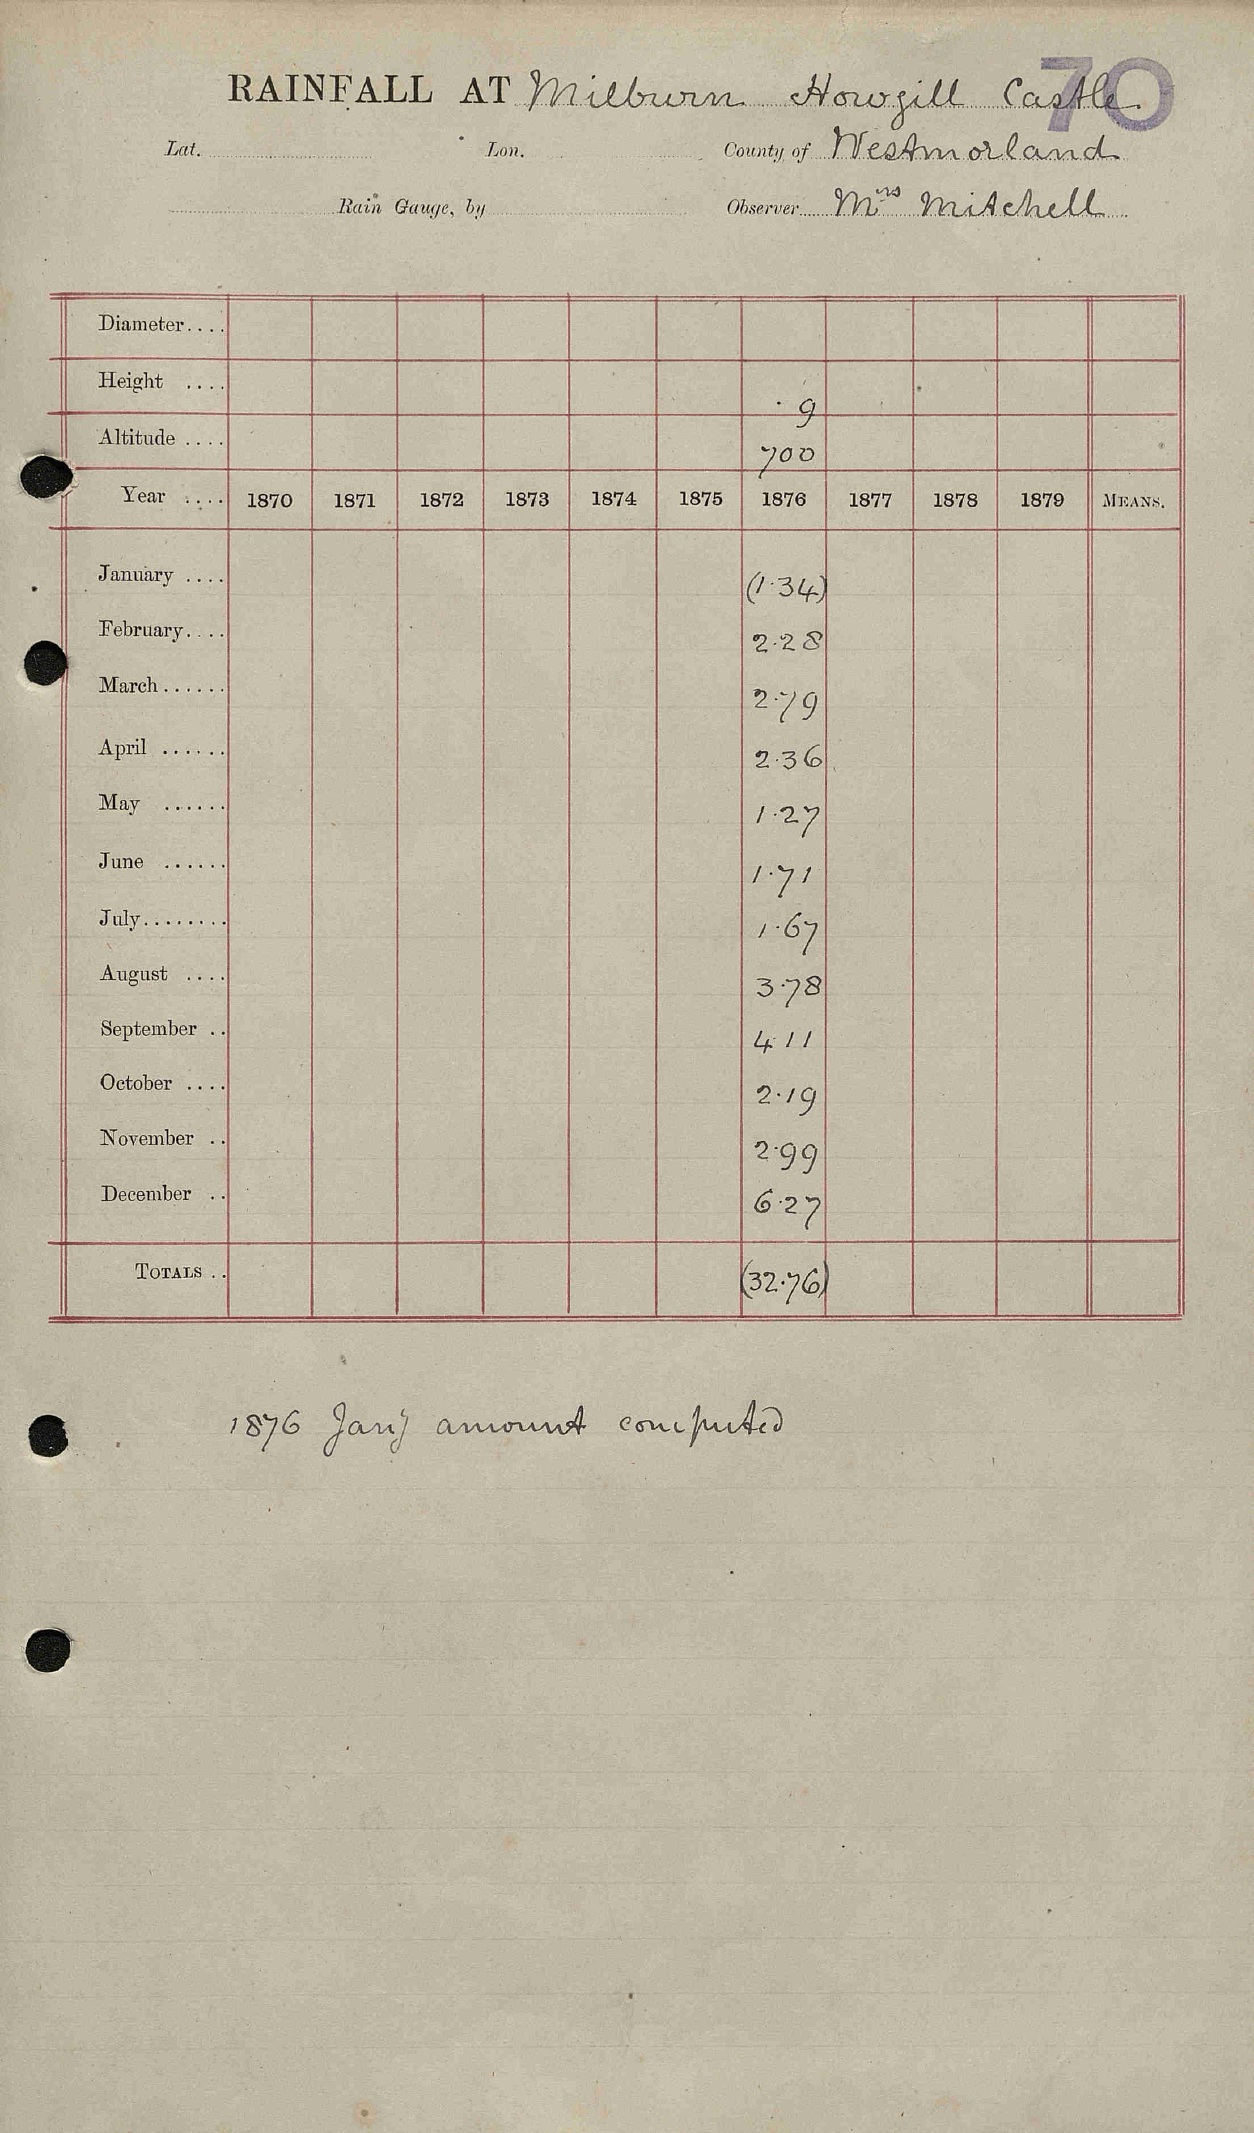 70
RAINFALL AT Milburn Howgill Castle.
Lat. Lon. County of Westmorland
Rain Gauge, by Observer Mrs Mitchell
Diameter....
Height .... · 9
Altitude .... 700
Year .... 1870 1871 1872 1873 1874 1875 1876 1877 1878 1879 MEANS.
January .... (1·34)
February.... 2·28
March...... 2·79
April ...... 2·36
May ...... 1·27
June ...... 1·71
July........ 1·67
August .... 3·78
September .. 4·11
October .... 2·19
November .. 2·99
December .. 6·27
TOTALS .. (32·76)
1876 Jany amount computed